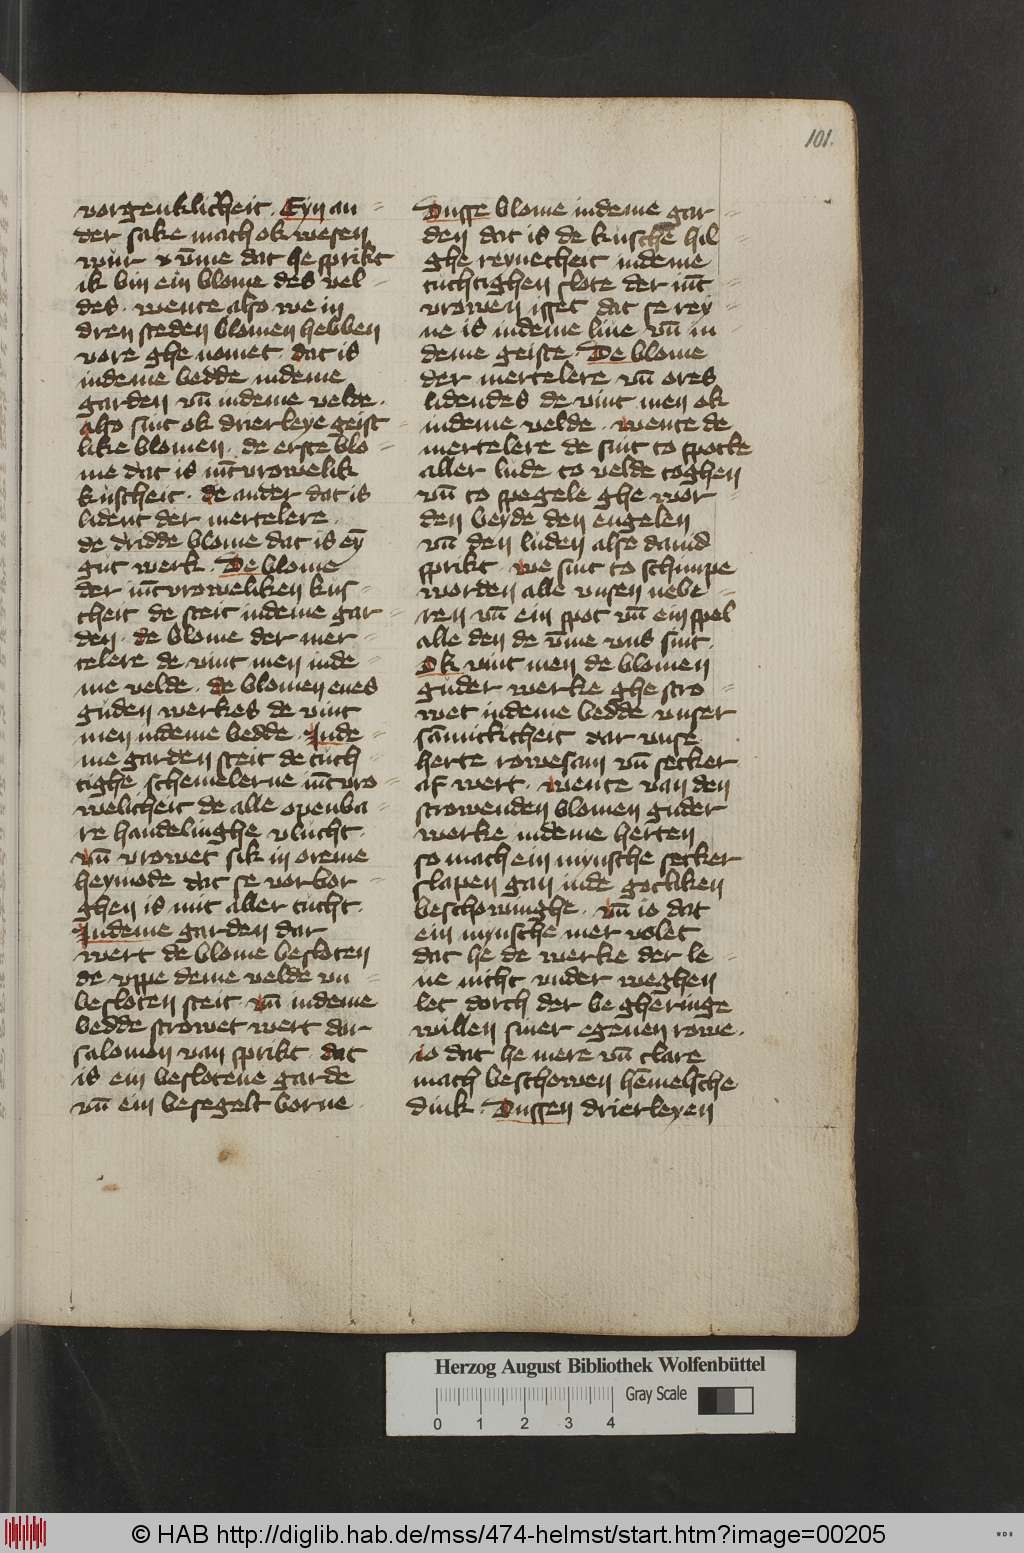 101.
vorgenklicheit. Eyn an
der sake mach ok wesen
wur v̄me dat he sprikt
ik bin ein blome des vel
des. wente also we in
dren steden blomen hebben
vore ghe nomet. dat is
indeme bedde indeme
garden vn̄ indeme velde.
also sint ok drierleye geist
like blomen. de erste blo
me dat is iūcvrowelik
kuscheit. de ander dat is
lident der mertelere.
de dridde blome dat is eȳ
gut werk. De blome
der iūcvroweliken kus
cheit de steit indeme gar
den. de blome der mer
telere de vint men inde
me velde. de blomen enes
guden werkes de vint
men indeme bedde. Inde
me garden steit de tuch
tighe schemelerne iūcvro
welicheit de alle openba
re handelinghe vlucht.
vn̄ vrowet sik in oreme
heymode dat se vorbor
ghen is mit aller tucht.
Indeme garden dar
wert de blome besloten
de vppe deme velde vn
besloten steit vn̄ indeme
bedde strowet wert dar
salomon van sprikt. dat
is ein beslotene garde
vn̄ ein besegelt borne.
Dusse blome indeme gar
den dat is de kusche hil
ghe reynecheit indeme
tuchtighen slote der iūc
vrowen isset dat se rey
ne is indeme liue vn̄ in
deme geiste. De blome
der mertelere vn̄ ores
lidendes de vint men ok
indeme velde. wente de
mertelere de sint to spotte
aller lude to velde toghen
vn̄ to spegele ghe wor
den beyde den engelen
vn̄ den luden alse dauid
sprikt. we sint to schimpe
worden alle vnsen nebe
ren vn̄ ein spot vn̄ ein spel
alle den de v̄me vns sint.
Ok vint men de blomen
guder werke ghe stro
wet indeme bedde vnser
sāmitticheit dar vnse
herte rowesam vn̄ secker
af wert. wente van den
strowenden blomen guder
werke indeme herten
so mach ein mynsche secker
slapen gan inde gotliken
beschowinghe. vn̄ io dat
ein mynsche mer volet
dat he de werke der le
ue nicht vnder weghen
let dorch der be gheringe
willen siner egenen rowe.
io dat he mere vn̄ clare
mach beschowen hēmelsche
dink. Dussen drierleyen
Herzog August Bibliothek Wolfenbüttel
Gray Scale
0 1 2 3 4
© HAB http://diglib.hab.de/mss/474-helmst/start.htm?image=00205